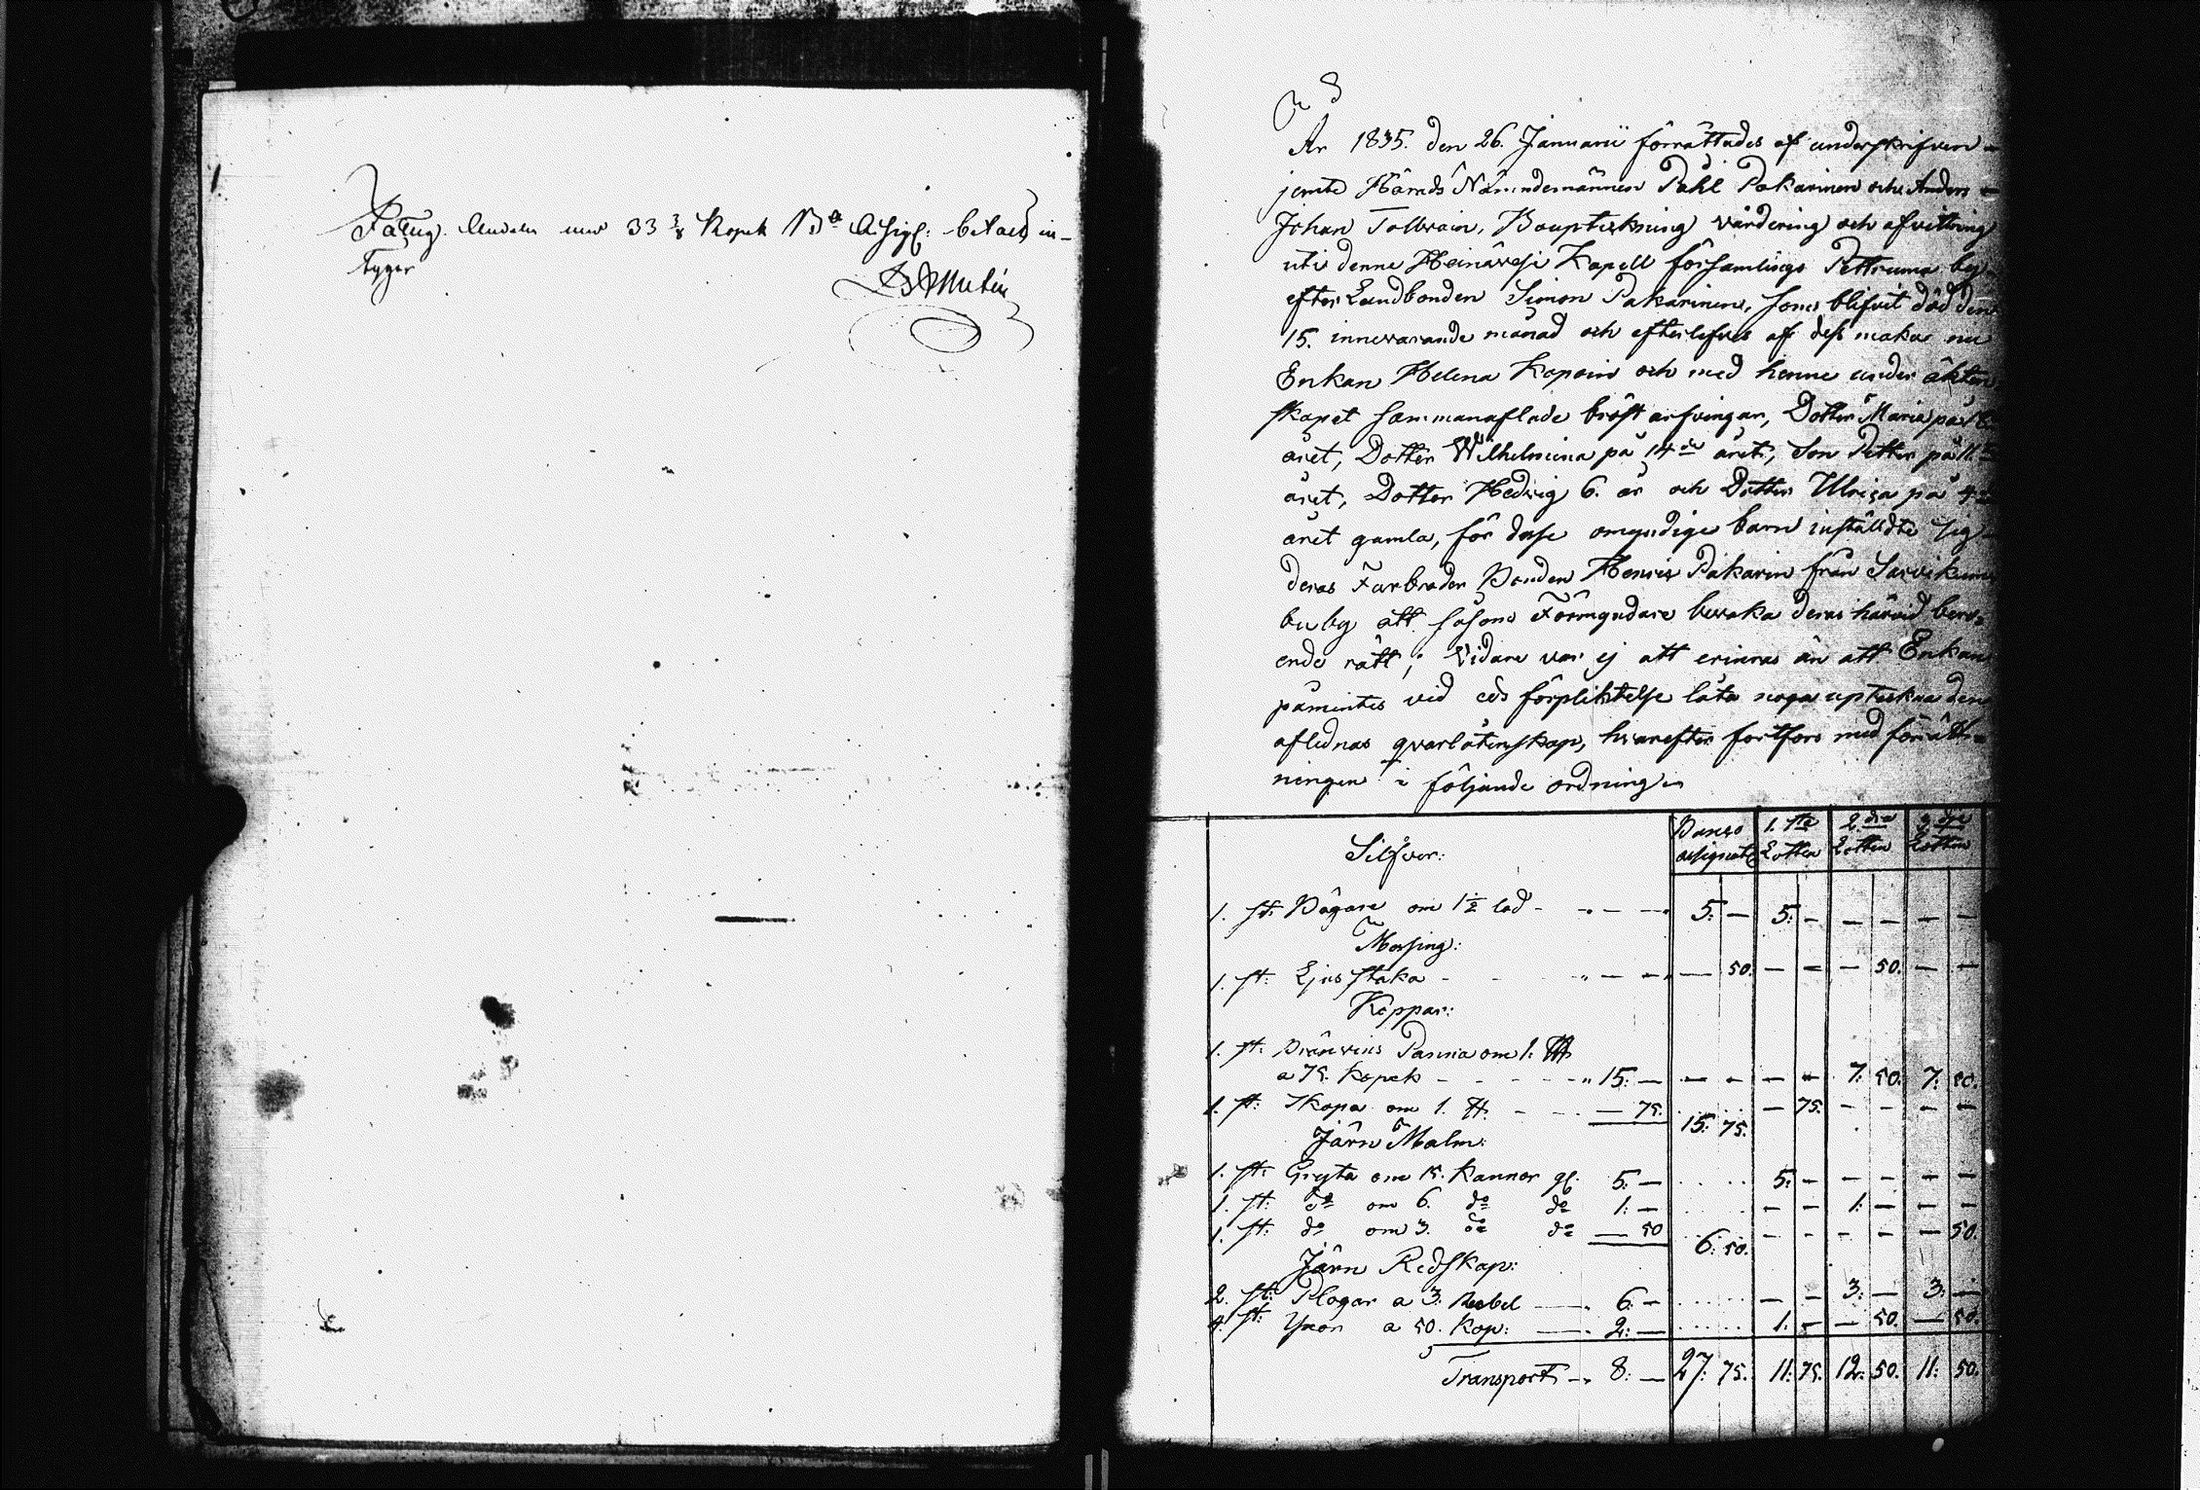 Fattig Andelen med 33 3/8 Kopek Bco Assigs: betald, in-
tygar
År 1835. den 26. Januarii förrättades af underskrifven
jemte Härads Nämndemännen Påhl Pakarinen och Anders
Johan Tolvain, Boupteckning värdering och afvittring
uti denne Heinävesi Kapell församlings Pettruma by
efter Landbonden Simon Pakarinen, som blifvit död den
15. innevarande månad och efterlefves af dess maka nu
Enkan Helena Kopoin och med henne under äkten
skapet sammanaflade bröst arfvingar, Dotter Maria på 18
året, Dotter Wilhelmina på 14de året, Son Petter på 11
året, Dotter Hedvig 6. år och Dotter Ulrica på 4
året gamla, för desse omyndige barn inställdte sig
deras Farbroder Bonden Henric Pakarin från Sarvikum
bu by att såsom Förmyndare bevaka deras härvid bero-
ende rätt; Vidare var ej att erinras än att Enkan
påmintes vid eds förpliktelse låta noga upteckna den
aflednas qvarlåtenskap, hvarefter fortfors med förrätt-
ningen i följande ordning
Silfver: Banco assignat 1.sta Lotten 2.dra Lotten 3.dje Lotten
1. st: Bägare om 1 1/2 lod - - - 5: — 5: — — — — —
Messing:
1. st: Ljus staka - - - — 50. — — — 50. — —
Koppar:
1. st: Bränvins Panna om 1. L℔
a 75. kopek - - - 15: — — — — — 7: 50. 7: 50.
1. st: Skopa om 1. ℔ - - — 75. 15: 75. — 75. — — — —
Järn Malm:
1. st: Gryta om 15. kannor gl. 5: — . . . . 5: — — — — —
1. st: do om 6. do do 1: — . . . . — — 1: — — —
1. st: do om 3. do do — 50 6: 50. — — — — — 50.
Järn Redskap:
2. st: Plogar a 3. Rubel — 6: — . . . . — — 3: — 3: —
4. st: Yxor a 50. kop: — 2: — . . . . 1: — — 50. — 50.
Transport 8: — 27: 75. 11: 75. 12: 50. 11: 50.